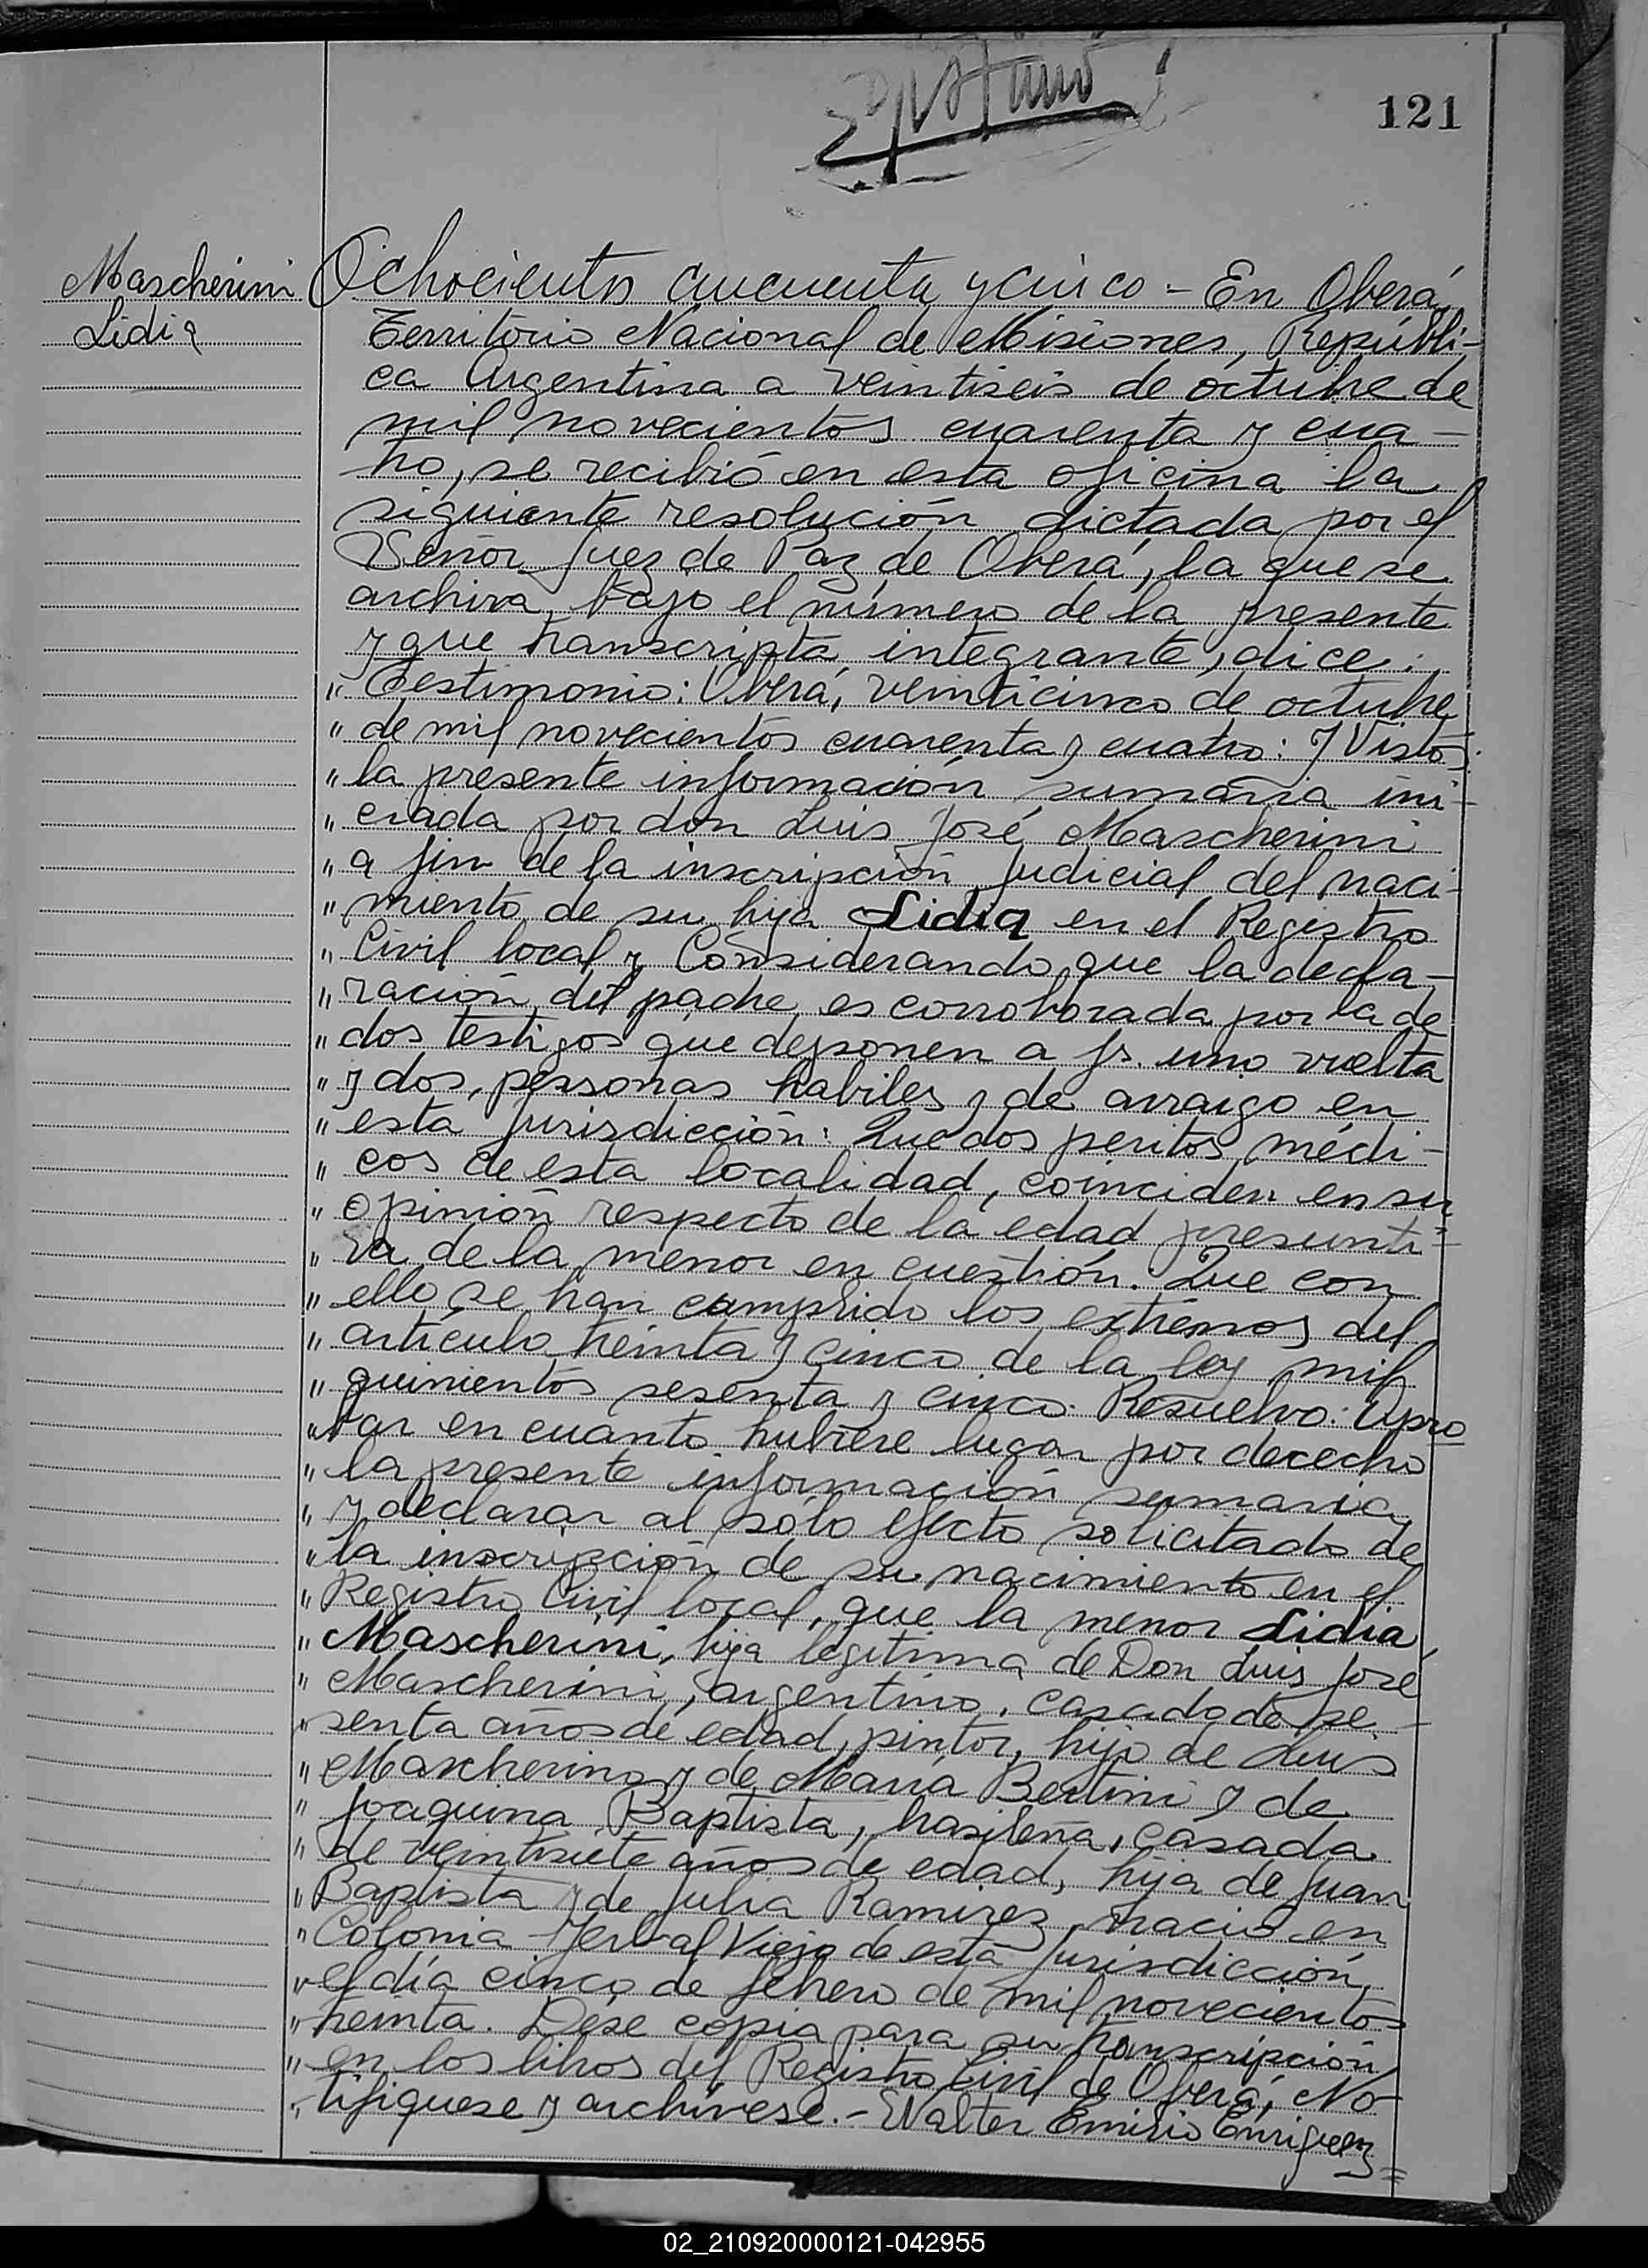 121
Mascherini
Lidia
Ochocientos cincuenta y cinco - En Oberá,
Territorio Nacional de Misiones, Repúbli-
ca Argentina a veintiseis de octubre de
mil novecientos cuarenta y cua-
tro, se recibió en esta oficina la
siguiente resolución dictada por el
Señor Juez de Paz de Oberá, la que se
archiva bajo el número de la presente
y que transcripta integrante, dice:
" Testimonio: Oberá, veinticinco de octubre
" de mil novecientos cuarenta y cuatro: Y Vistos:
" la presente información sumaria ini-
" ciada por don Luis José Mascherini
" a fin de la inscripción judicial del naci-
" miento de su hija Lidia en el Registro
" Civil local y Considerando que la decla-
" ración del padre es corroborada por la de
" dos testigos que deponen a fs. uno vuelta
" y dos, personas habiles y de arraigo en
" esta jurisdicción: Que dos peritos médi-
" cos de esta localidad, coinciden en su
" opinión respecto de la edad presunti-
" va de la menor en cuestión. Que con
" ello se han cumplido los extremos del
" artículo treinta y cinco de la ley mil
" quinientos sesenta y cinco. Resuelvo: Apro
" bar en cuanto hubiere lugar por derecho
" la presente información sumaria
" y declarar al sólo efecto solicitado de
" la inscripción de su nacimiento en el
" Registro Civil local, que la menor Lidia
" Mascherini, hija legítima de Don Luis José
" Mascherini, argentino, casado de se-
" senta años de edad, pintor, hijo de Luis
" Mascherino y de María Bertini y de
" Joaquina Baptista, brasileña, casada
" de veintisiete años de edad, hija de Juan
" Baptista y de Julia Ramirez, nació en
" Colonia Yerbal Viejo de esta jurisdicción,
" el día cinco de febrero de mil novecientos
" treinta. Dése copia para su transcripción
" en los libros del Registro Civil de Oberá, No-
" tifiquese y archívese.- Walter Emilio Enriquez=
02_210920000121-042955